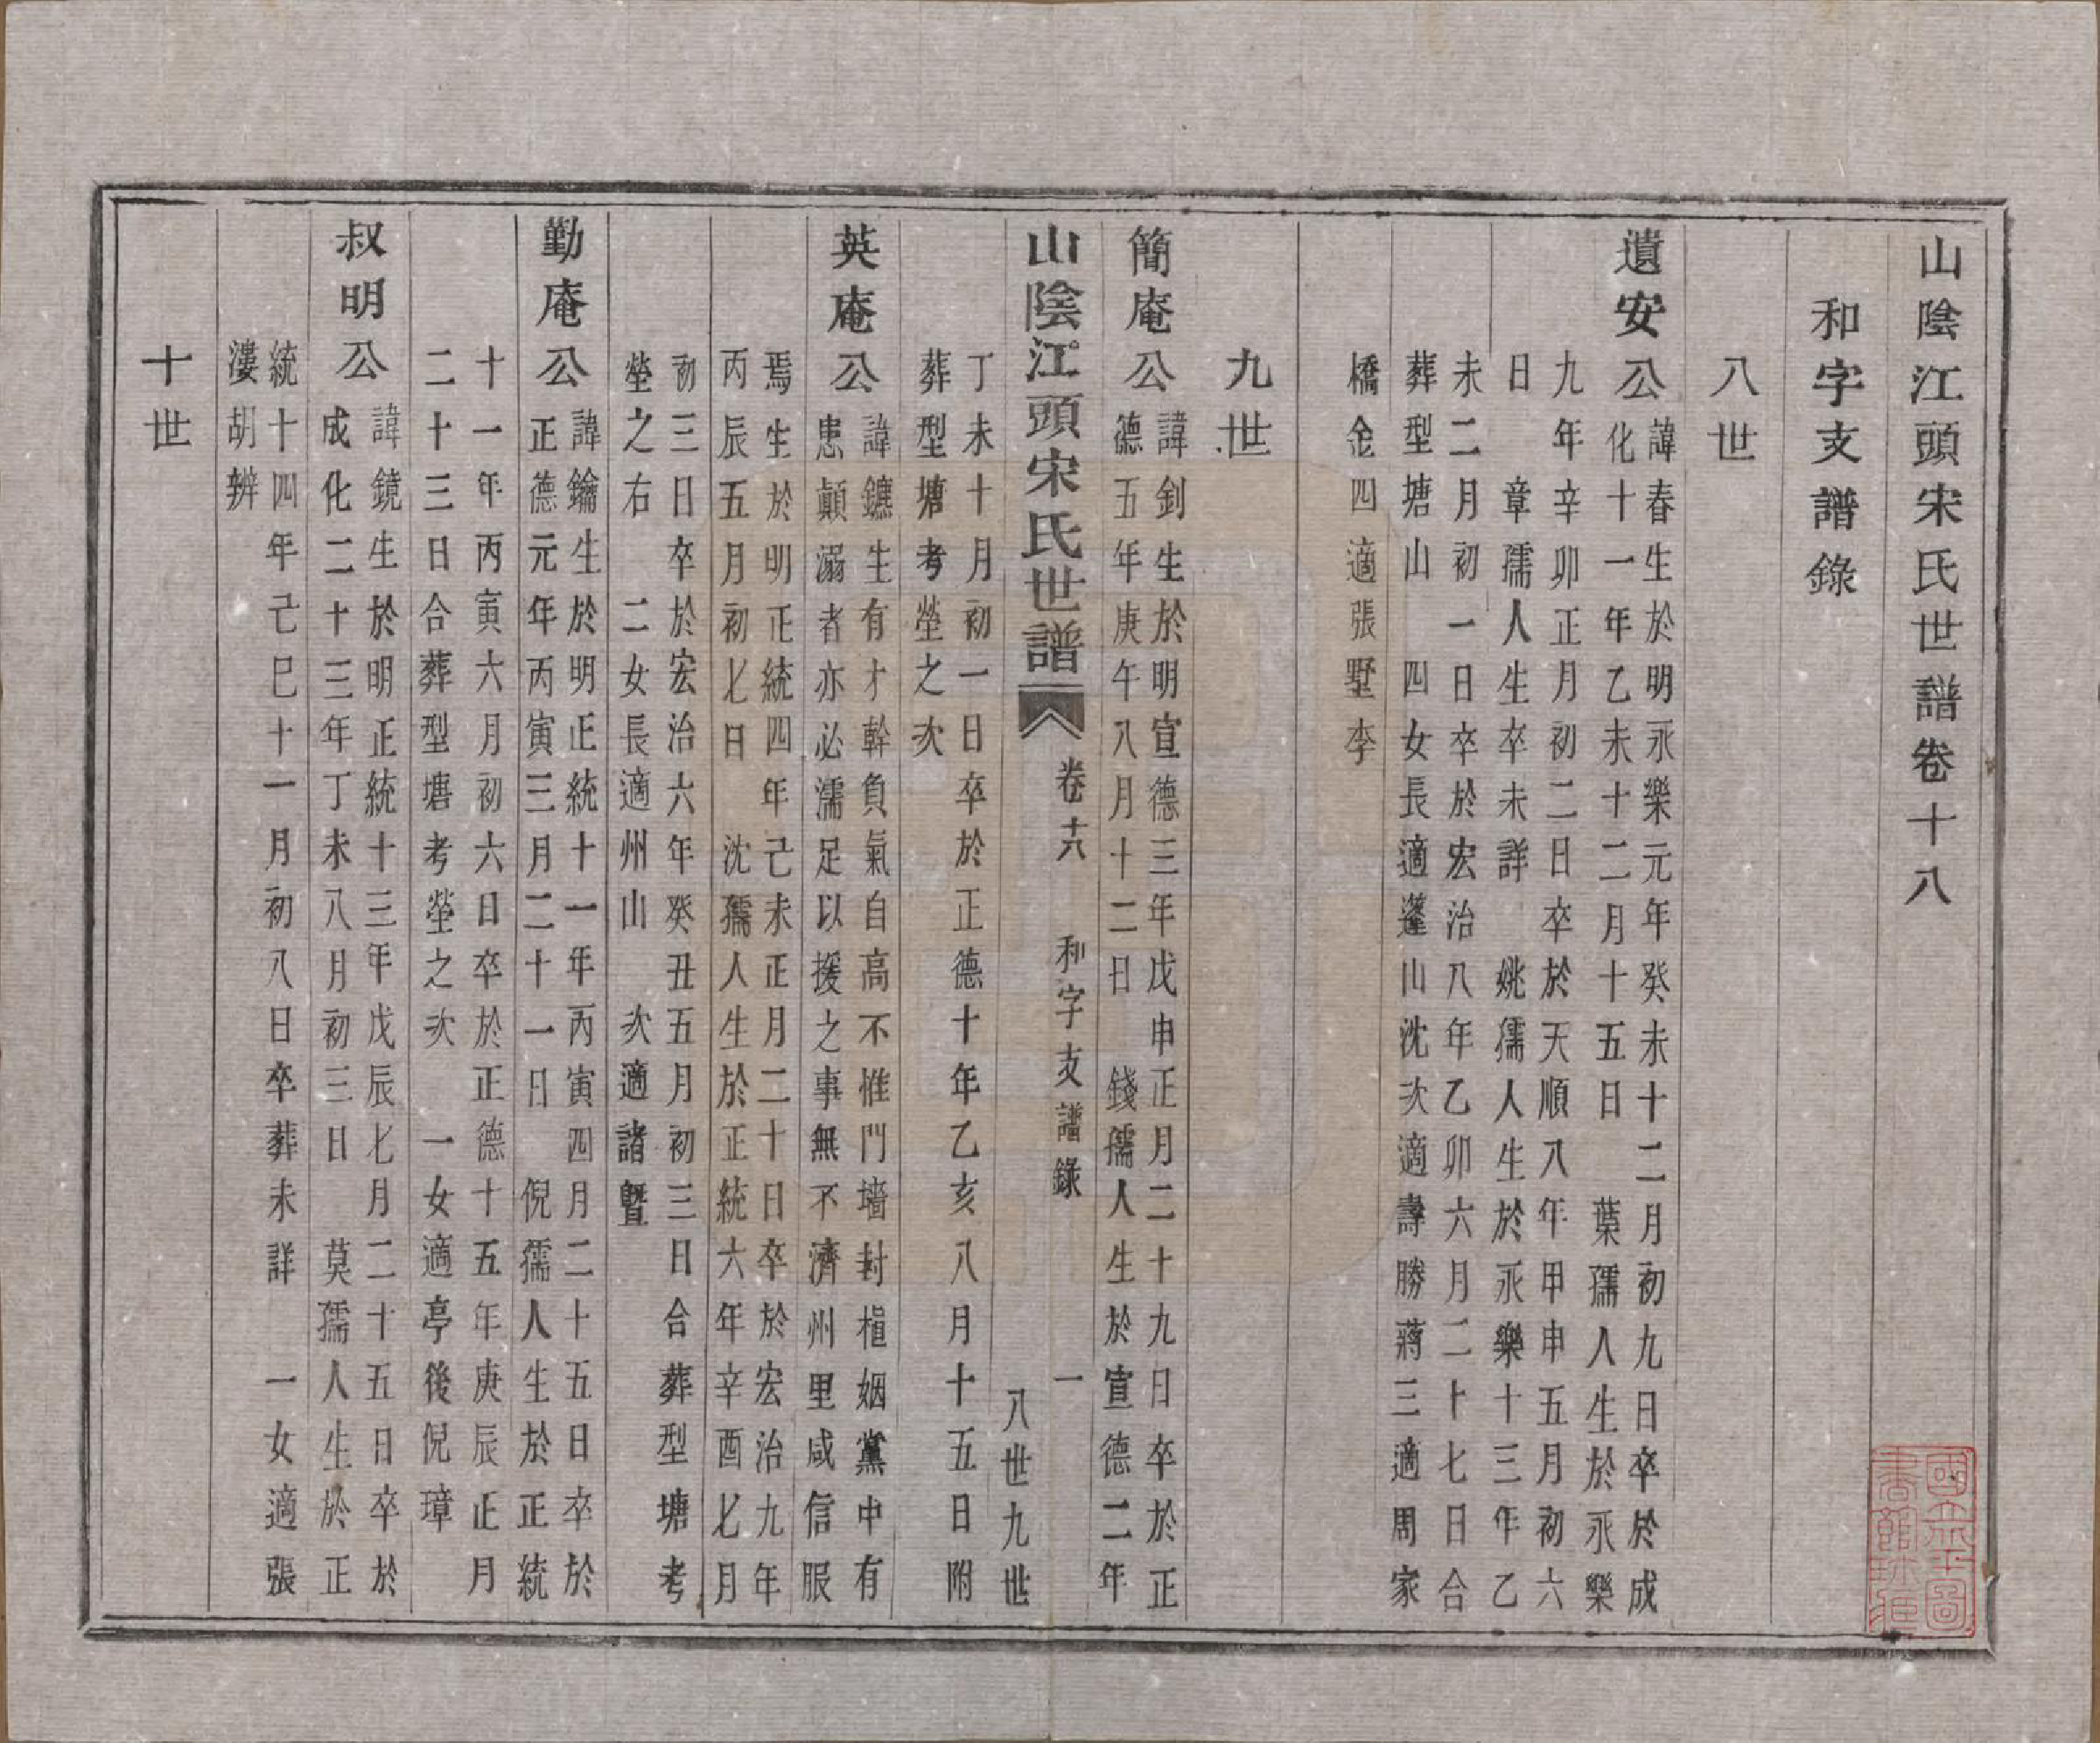 山陰江頭宋氏世譜卷十八
和字支譜錄
八世
遺安公諱春生於明永樂元年癸未十二月初九日卒於成
化十一年乙未十二月十五日　葉孺人生於永樂
九年辛卯正月初二日卒於天順八年甲申五月初六
日　章孺人生卒未詳　姚孺人生於永樂十三年乙
未二月初一日卒於宏治八年乙卯六月二十七日合
葬型塘山　四女長適蓬山沈次適壽勝蔣三適周家
橋金四適張墅李
九世
簡庵公諱釗生於明宣德三年戊申正月二十九日卒於正
德五年庚午八月十二日　錢孺人生於宣德二年
山陰江頭宋氏世譜　卷十八　和字支譜錄　一
八世九世
丁未十月初一日卒於正德十年乙亥八月十五日附
葬型塘考塋之次
英庵公諱鑣生有才幹負氣自高不惟門墻封植姻黨中有
患顛溺者亦必濡足以援之事無不濟州里咸信服
焉生於明正統四年己未正月二十日卒於宏治九年
丙辰五月初七日　沈孺人生於正統六年辛酉七月
初三日卒於宏治六年癸丑五月初三日合葬型塘考
塋之右　二女長適州山　次適諸暨
勤庵公諱鑰生於明正統十一年丙寅四月二十五日卒於
正德元年丙寅三月二十一日　倪孺人生於正統
十一年丙寅六月初六日卒於正德十五年庚辰正月
二十三日合葬型塘考塋之次　一女適亭後倪璋
叔明公諱鏡生於明正統十三年戊辰七月二十五日卒於
成化二十三年丁未八月初三日　莫孺人生於正
統十四年己巳十一月初八日卒葬未詳　一女適張
漊胡辨
十世